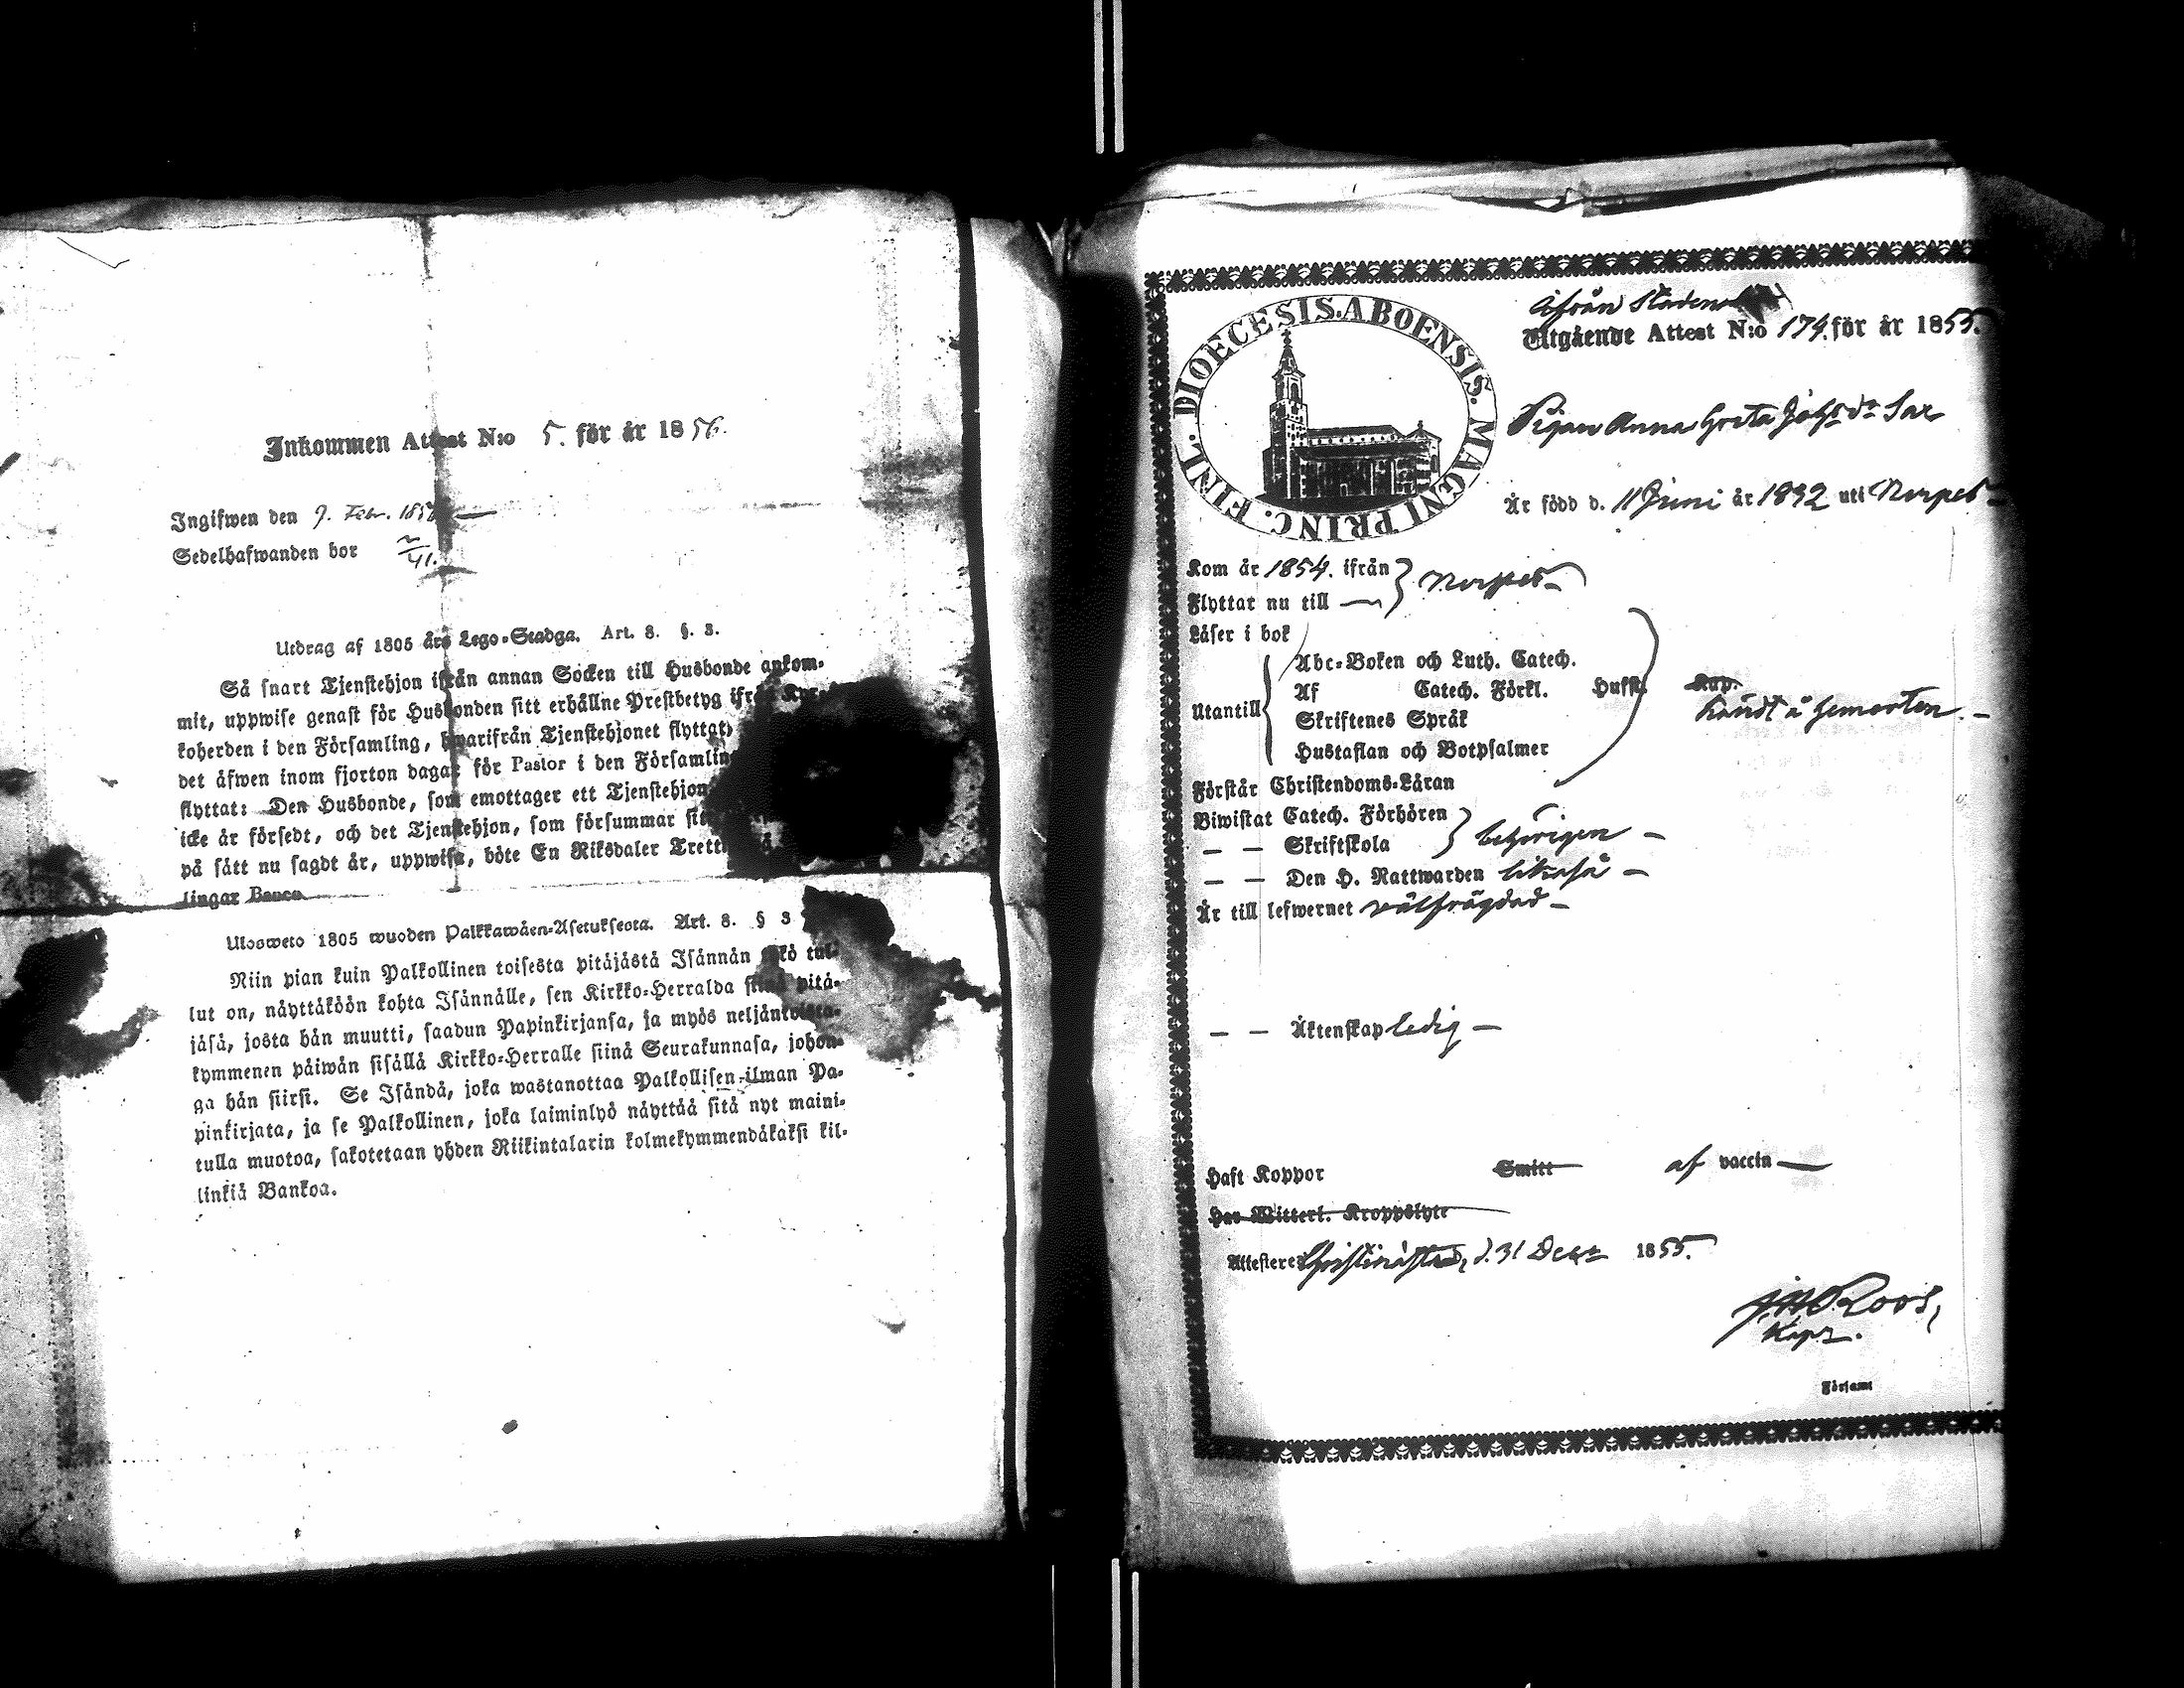 Inkommen Attest N:o 5. för år 1856.
Ingifwen den 9. Febr. 1856
Sedelhafwanden bor 2/41.
Utdrag af 1805 års Lego-Stadga. Art. 8. §. 3.
Så snart Tjenstehjon ifrån annan Socken till Husbonde ankom-
mit, uppwise genast för Husbonden sitt erhållne Prestbetyg ifrån Kyr-
koherden i den Församling, hwarifrån Tjenstehjonet flyttat,
det äfwen inom fjorton dagar för Pastor i den Församling
flyttat: Den Husbonde, som emottager ett Tjenstehjon
icke är försedt, och det Tjenstehjon, som försummar sitt
på sätt nu sagdt är, uppwisa, böte En Riksdaler Trettio
lingar Banco.
Ulosweto 1805 wuoden Palkkawäen-Asetuksesta. Art. 8. § 3
Niin pian kuin Palkollinen toisesta pitäjästä Isännän tykö tul-
lut on, näyttäköön kohta Isännälle, sen Kirkko-Herralda siinä pitä-
jäsä, josta hän muutti, saadun Papinkirjansa, ja myös neljäntoista-
kymmenen päiwän sisällä Kirkko-Herralle siinä Seurakunnasa, johon-
ga hän siirsi. Se Isändä, joka wastanottaa Palkollisen ilman Pa-
pinkirjata, ja se Palkollinen, joka laiminlyö näyttää sitä nyt maini-
tulla muotoa, sakotetaan yhden Riikintalarin kolmekymmendäkaksi kil-
linkiä Bankoa.
DIOECESIS. ABOENSIS. MAGNI PRINC. FINL.
ifrån Staden
Utgående Attest N:o 174. för år 1855.
Pigan Anna Greta Johsdr Sax
Är född d. 11 Juni år 1832 uti Nerpes
Kom år 1854. ifrån } Nerpes
Flyttar nu till
Läser i bok
Abc-Boken och Luth. Catech.
Utantill Af Catech. Förkl. Husst. Kap.
Skriftenes Språk
Hustaflan och Botpsalmer
Förstår Christendoms-Läran
Biwistat Catech. Förhören
— — Skriftskola } behörigen —
— — Den H. Nattwarden likaså —
Är till lefwernet välfrägdad —
— — Äktenskap ledig —
Haft Koppor Smitt af vaccin —
Har Witterl. Kroppslyte
Attesterer Christinestad, d. 31 Decr 1855.
Roos,
Kapn.
Församl